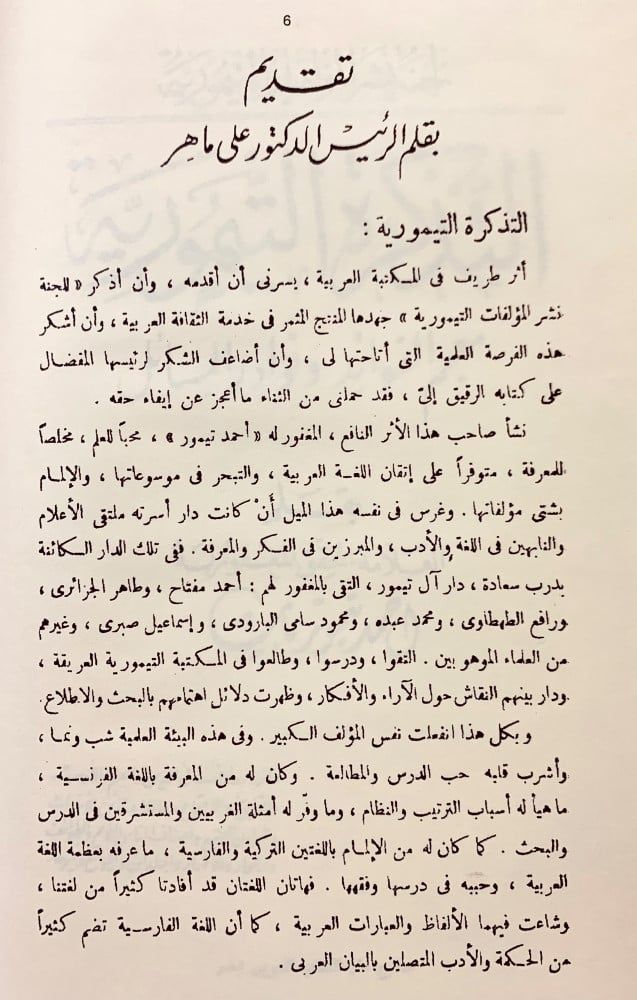 6
تقديم
بقلم الرئيس الدكتور على ماهر
التذكرة التيمورية :
أثر طريف فى المكتبة العربية ، يسرنى أن أقدمه ، وأن أذكر « للجنة
نشر المؤلفات التيمورية » جهدها المنتج المثمر فى خدمة الثقافة العربية ، وأن أشكر
هذه الفرصة العلمية التى أتاحتها لى ، وأن أضاعف الشكر لرئيسها المفضال
على كتابه الرقيق إلىّ ، فقد حملنى من الثناء ما أعجز عن إيفاء حقه .
نشأ صاحب هذا الأثر النافع ، المغفور له « أحمد تيمور » ، محباً للعلم ، مخلصاً
للمعرفة ، متوفراً على إتقان اللغة العربية ، والتبحر فى موسوعاتها ، والإلمام
بشتى مؤلفاتها . وغرس فى نفسه هذا الميل أَنْ كانت دار أسرته ملتقى الأعلام
والنابهين فى اللغة والأدب ، والمبرزين فى الفكر والمعرفة . ففى تلك الدار الكائنة
بدرب سعادة ، دار آل تيمور ، التقى بالمغفور لهم : أحمد مفتاح ، وطاهر الجزائرى ،
ورافع الطهطاوى ، ومحمد عبده ، ومحمود سامى البارودى ، وإسماعيل صبرى ، وغيرهم
من العلماء الموهوبين . التقوا ، ودرسوا ، وطالعوا فى المكتبة التيمورية العريقة ،
ودار بينهم النقاش حول الآراء والأفكار ، وظهرت دلائل اهتمامهم بالبحث والاطلاع .
وبكل هذا انفعلت نفس المؤلف الكبير . وفى هذه البيئة العلمية شب ونما ،
وأشرب قلبه حب الدرس والمطالعة . وكان له من المعرفة باللغة الفرنسية ،
ما هيأ له أسباب الترتيب والنظام ، وما وفّر له أمثلة الغربيين والمستشرقين فى الدرس
والبحث . كما كان له من الإلمام باللغتين التركية والفارسية ، ما عرفه بعظمة اللغة
العربية ، وحببه فى درسها وفقهها . فهاتان اللغتان قد أفادتا كثيراً من لغتنا ،
وشاعت فيهما الألفاظ والعبارات العربية ، كما أن اللغة الفارسية تضم كثيراً
من الحكمة والأدب المتصلين بالبيان العربى .